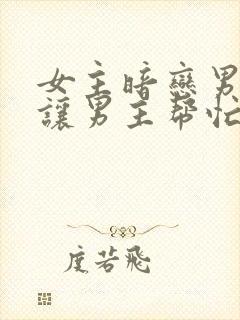 女主暗戀男
讓男主幫忙
度若飛